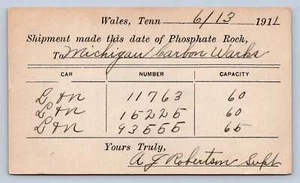 Wales, Tenn 6/13 1911
Shipment made this date of Phosphate Rock,
To Michigan Carbon Works
CAR NUMBER CAPACITY
L&N 11763 60
L&N 15225 60
L&N 93555 65
Yours Truly,
A J Robertson Supt